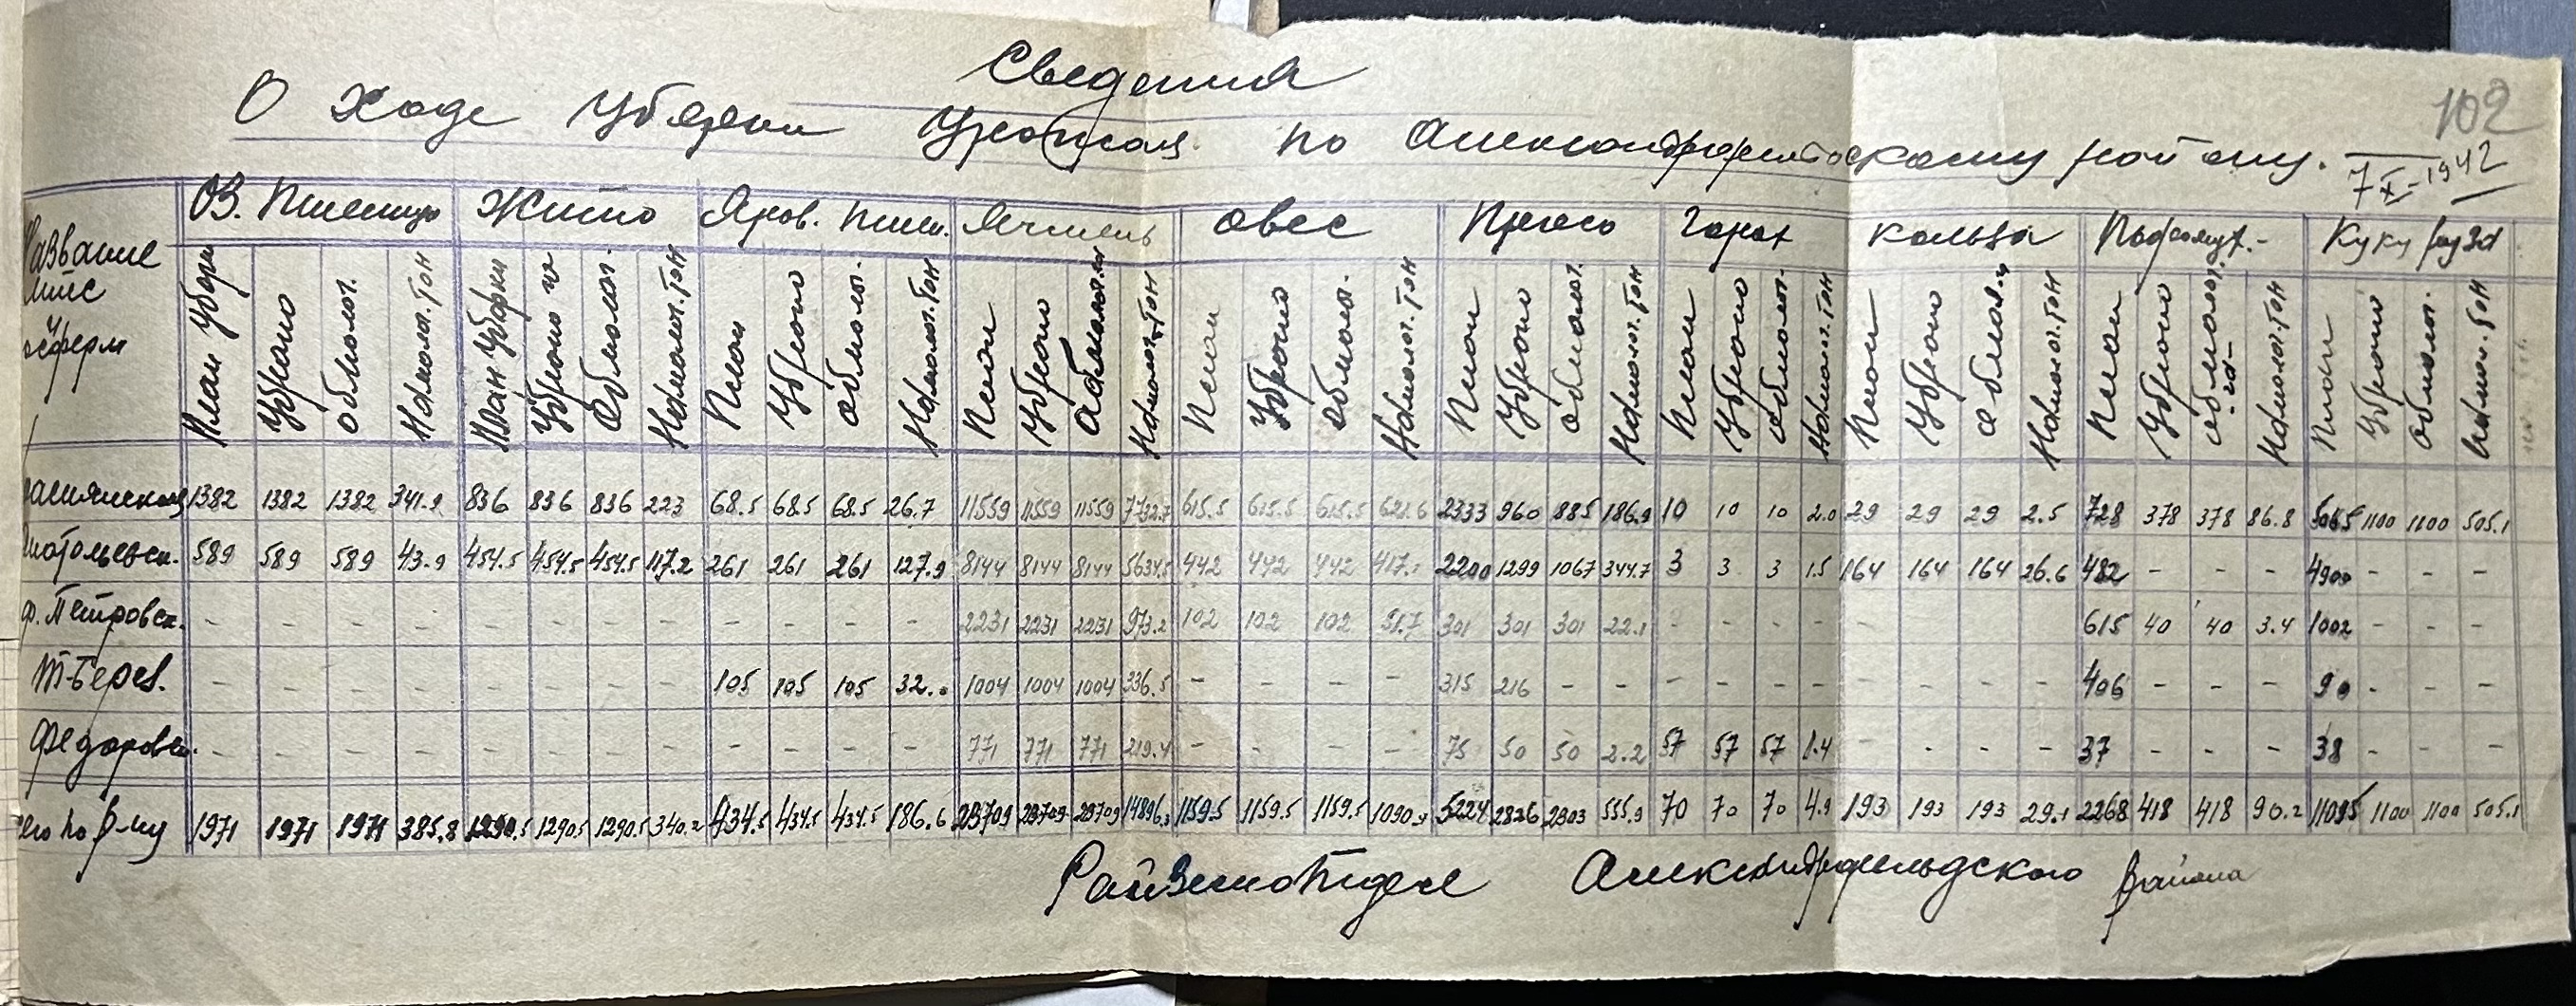 102
Сведения
О ходе Уборки Урожая по Александрфельдскому району.
7/X-1942
Название
ферм
Оз. Пшеница Жито Яров. Пшен. Ячмень Овес Просо Горох Кользы Подсолнух.- Кукуруза
План Уборки Убрано Обмолот. Намолот. Тон План Уборки Убрано га Обмолот. Намолот. Тон План Убрано Обмолот. Намолот. Тон План Убрано Обмолот. Намолот. Тон План Убрано Обмолот. Намолот. Тон План Убрано Обмолот. Намолот. Тон План Убрано Обмолот. Намолот. Тон План Убрано Обмол. Намолот. Тон План Убрано Обмолот. га Намолот. Тон План Убрано Обмолот. Намол. Тон
1382 1382 1382 341.9 836 836 836 223 68.5 68.5 68.5 26.7 11559 11559 11559 7732.7 615.5 615.5 615.5 621.6 2333 960 885 186.9 10 10 10 2.0 29 29 29 2.5 728 378 378 86.8 5065 1100 1100 505.1
Анатольевск. 589 589 589 43.9 454.5 454.5 454.5 117.2 261 261 261 127.9 8144 8144 8144 5634.5 442 442 442 417. 2200 1299 1067 344.7 3 3 3 1.5 164 164 164 26.6 482 - - - 4900 - - -
ф. Петровск. - - - - - - - - - - - - 2231 2231 2231 973.2 102 102 102 51.7 301 301 301 22.1 - - - - - - - - 615 40 40 3.4 1002 - - -
Т-Берез. - - - - - - - - 105 105 105 32.0 1004 1004 1004 336.5 - - - - 315 216 - - - - - - - - - - 406 - - - 90 - - -
Федоровк. - - - - - - - - - - - - 771 771 771 219.4 - - - - 75 50 50 2.2 57 57 57 1.4 - - - - 37 - - - 38 - - -
его по р-ну 1971 1971 1971 385.8 1290.5 1290.5 1290.5 340.2 434.5 434.5 434.5 186.6 23709 23709 23709 14896.3 1159.5 1159.5 1159.5 1090.4 5224 2826 2303 555.9 70 70 70 4.9 193 193 193 29.1 2268 418 418 90.2 11095 1100 1100 505.1
Райземотдел Александрфельдского района